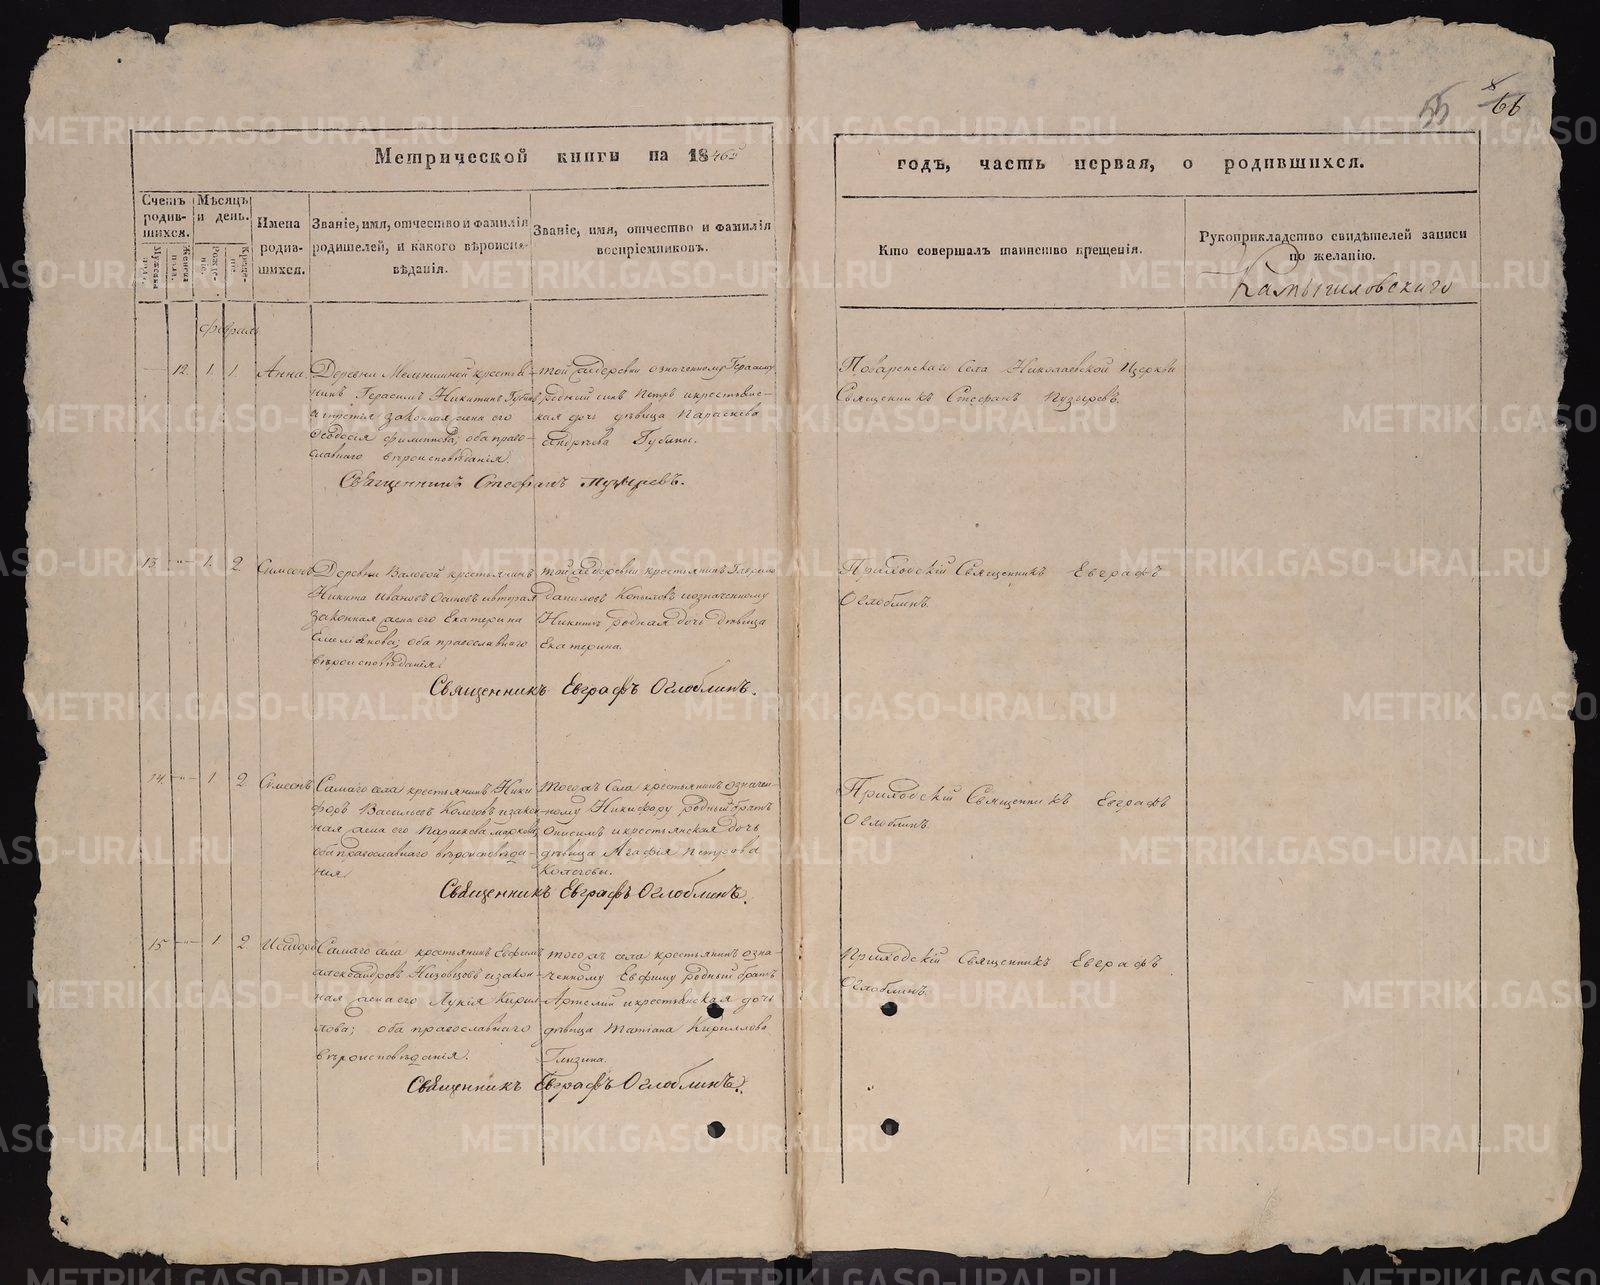 55
66
Метрической книги на 1846й
годъ, часть первая, о родившихся.
Счетъ родив-шихся.
Мужеска пола.
Женска пола.
Мѣсяцъ и день.
Рожде-нія.
Креще-нія.
Имена родив-шихся.
Званіе, имя, отчество и фамилія родителей, и какого вѣроиспо-вѣданія.
Званіе, имя, отчество и фамилія воспріемниковъ.
Кто совершалъ таинство крещенія.
Рукоприкладство свидѣтелей записи по желанію.
Камышловскаго
Февраль
12. 1. 1. Анна
Деревни крестья-
нинъ Герасимъ Никитинъ Губинъ
и третія законная жена его
Ѳеодосія Филиппова; оба право-
славнаго вѣроисповѣданія.
той же деревни означенному Герасиму
родный сынъ Петръ и крестьянс-
кая дочь дѣвица Параскева
Андреева Губины.
Священникъ Стефанъ Пузыревъ.
Поваренскаго села Николаевской Церкви
Священникъ Стефанъ Пузыревъ.
13 1. 2 Симеонъ
Деревни Валовой крестьянинъ
Никита Ивановъ Осиповъ и вторая
законная жена его Екатерина
Емелianова; оба православнаго
вѣроисповѣданія.
той же деревни крестьянинъ Гаврило
Даниловъ Копыловъ и означенному
Никитѣ родная дочь дѣвица
Екатерина.
Священникъ Евграфъ Оглоблинъ.
Приходскій Священникъ Евграфъ
Оглоблинъ.
14. 1 2 Симеонъ
Самаго села крестьянинъ Ники-
форъ Васильевъ Кологовъ и закон-
ная жена его Параскева Маркова;
оба православнаго вѣроисповѣда-
нія.
тогожъ села крестьянинъ означен-
ному Никифору родный братъ
Онисимъ и крестьянская дочь
дѣвица Агафія Петрова
Кологовы.
Священникъ Евграфъ Оглоблинъ.
Приходскій Священникъ Евграфъ
Оглоблинъ.
15 1 2 Исидоръ
Самаго села крестьянинъ Евфимъ
Александровъ Низовцовъ и закон-
ная жена его Лукія Кирил-
лова; оба православнаго
вѣроисповѣданія.
тогожъ села крестьянинъ озна-
ченному Евфиму родный братъ
Артемій и крестьянская дочь
дѣвица Татiана Кириллова
Глызина.
Священникъ Евграфъ Оглоблинъ.
Приходскій Священникъ Евграфъ
Оглоблинъ.
METRIKI.GASO-URAL.RU